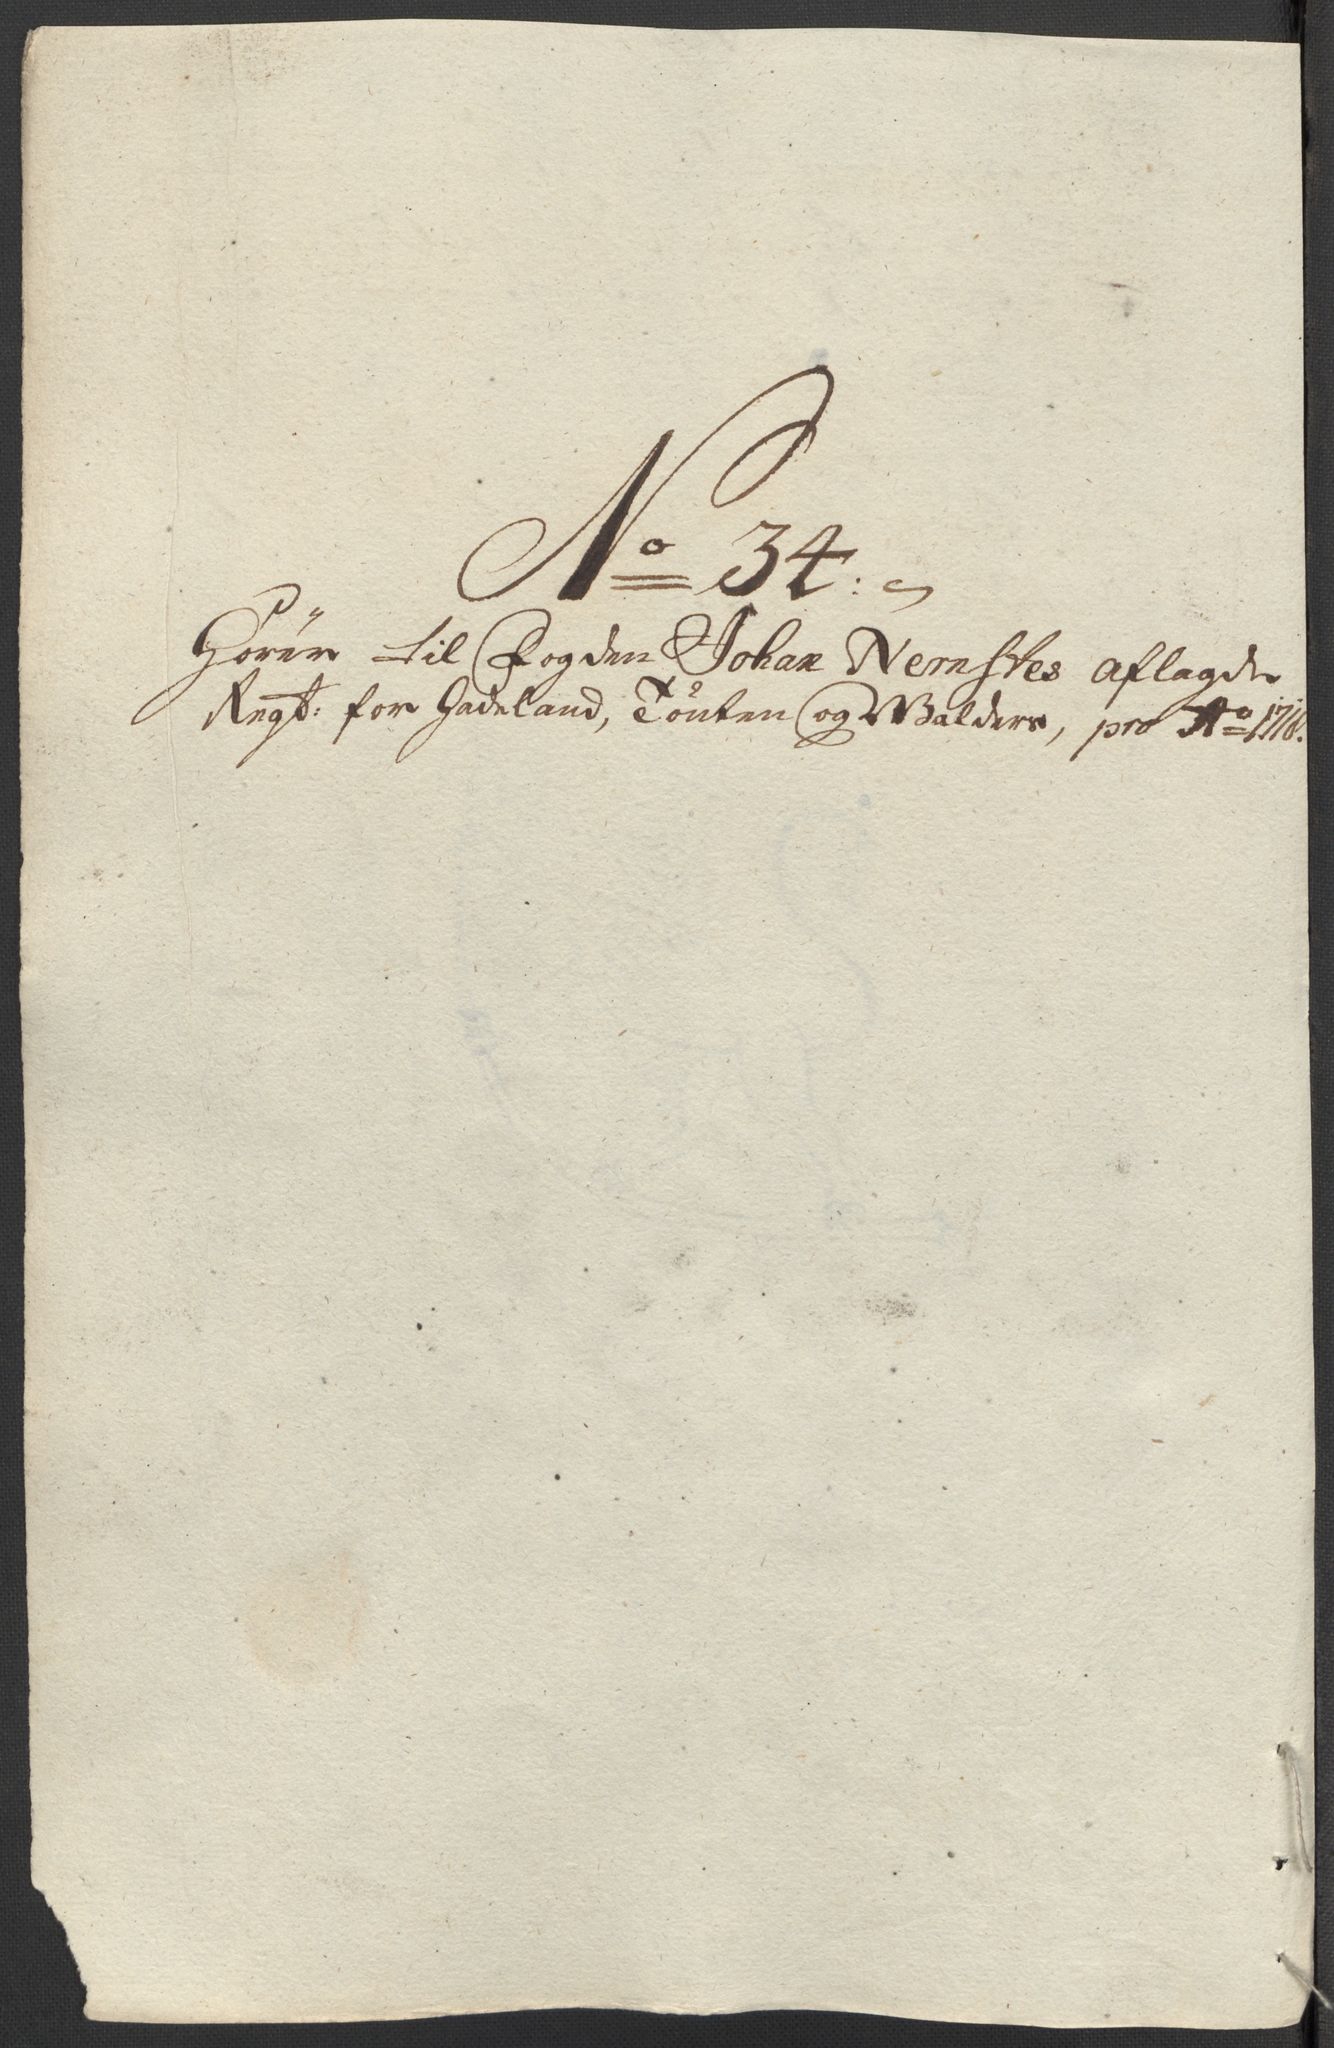 No 34:
Hörer til Fogden Johan Nernstes aflagde
Regt: for Hadeland, Toten og Walders, pro Ao 1718.